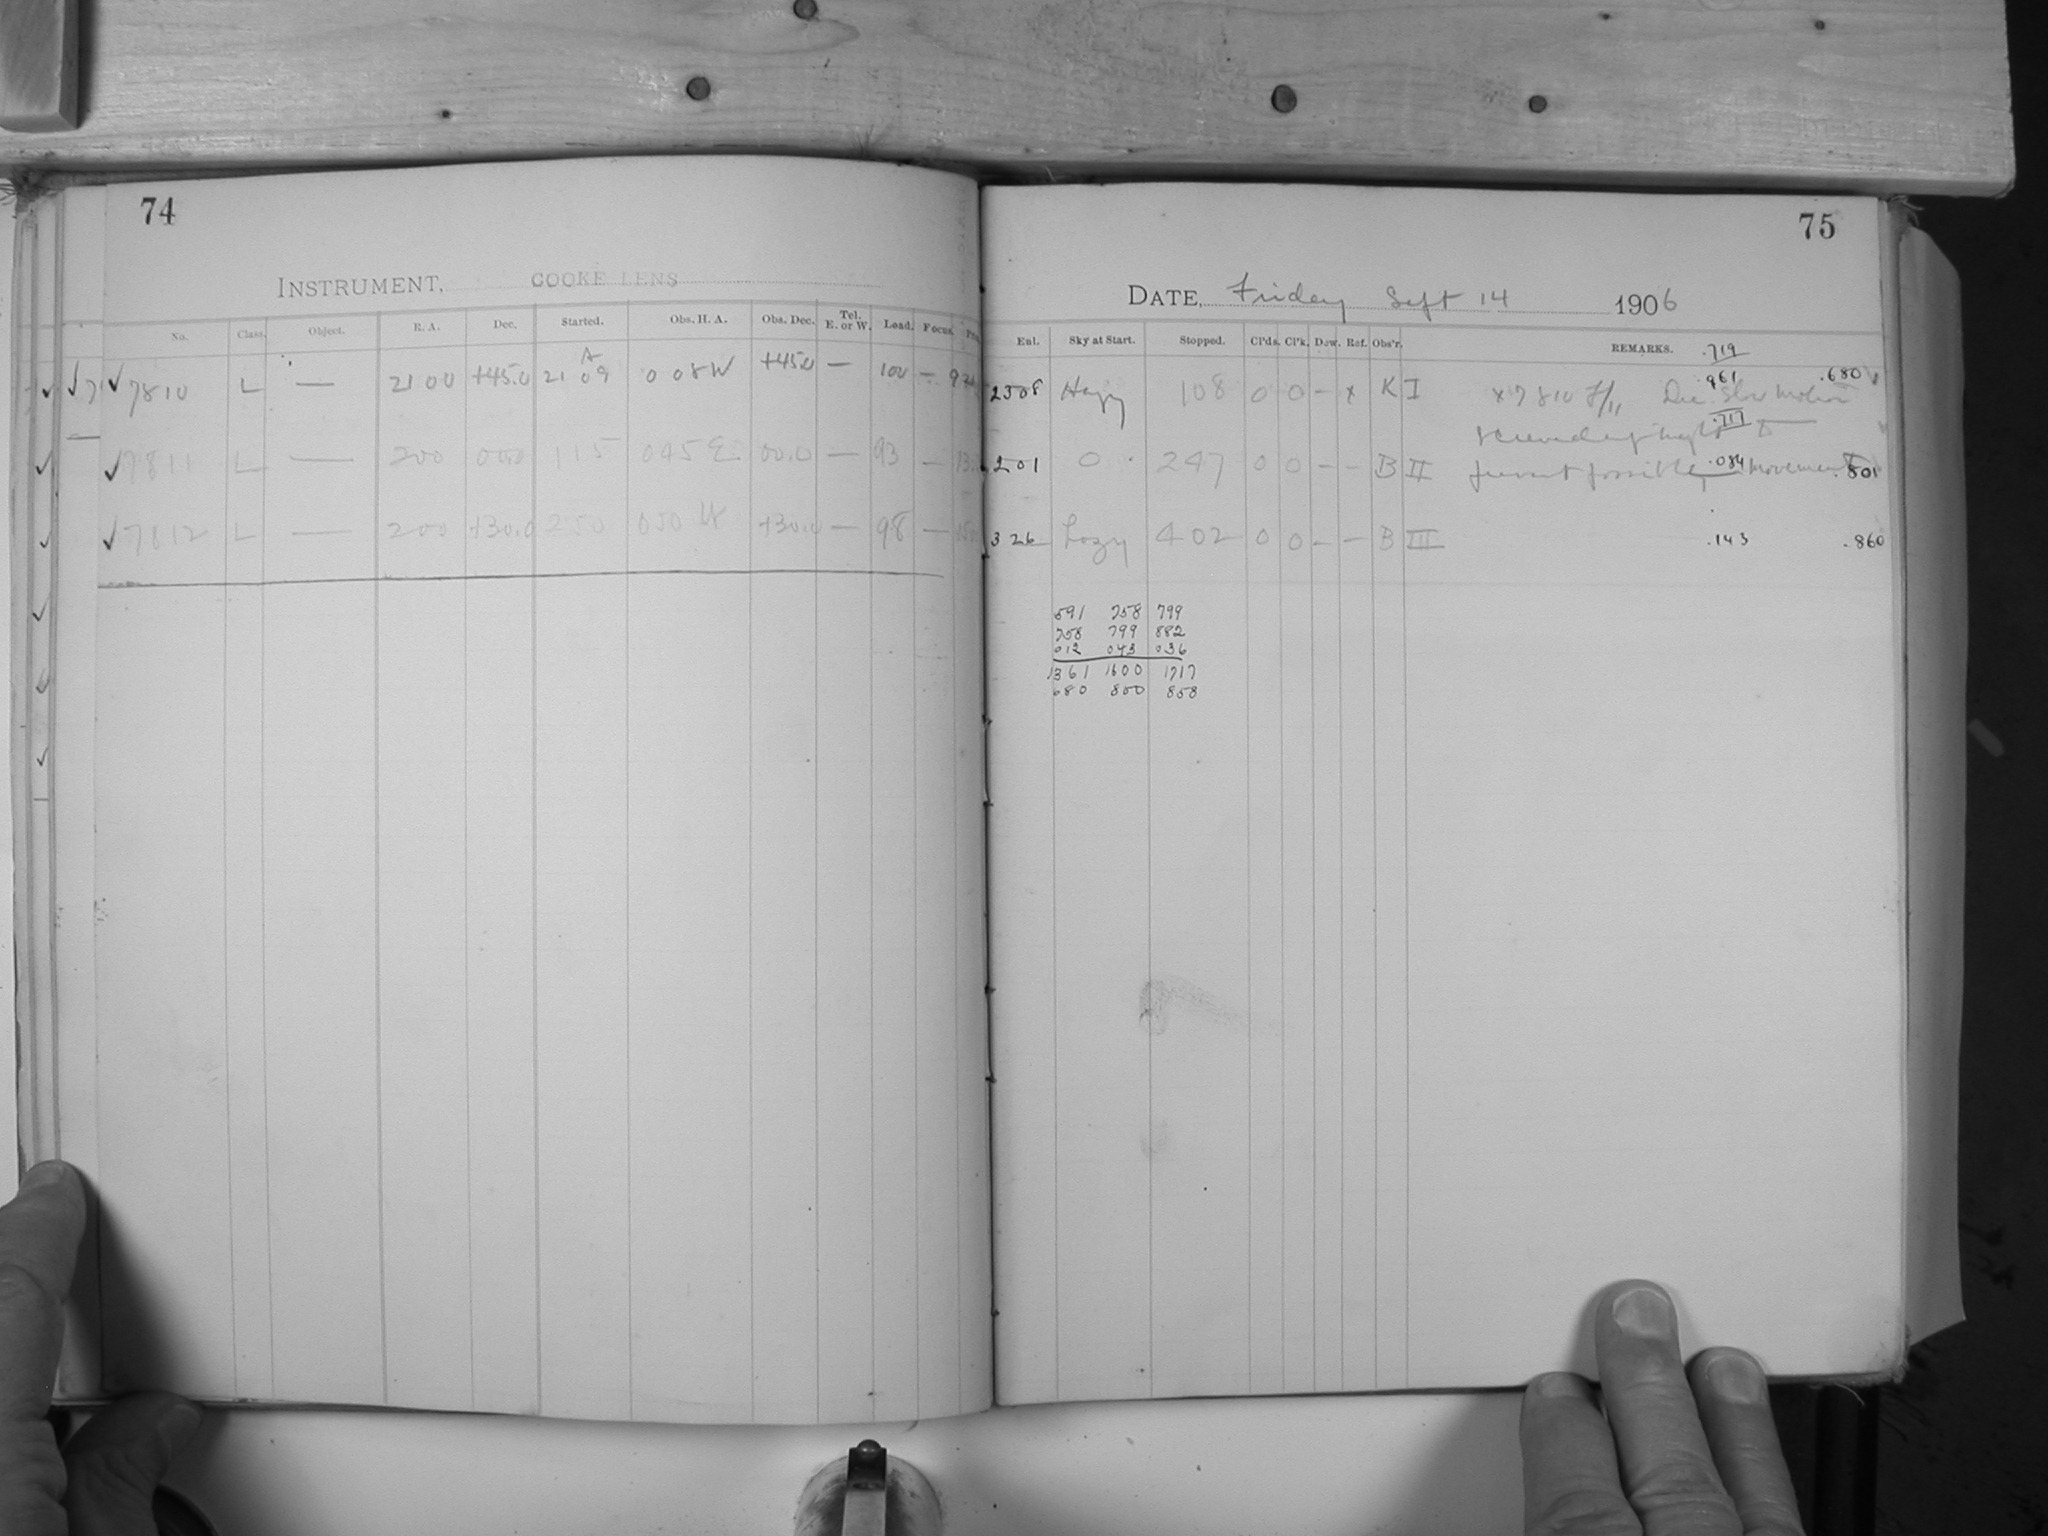 74
INSTRUMENT, COOKE LENS
No. Class. Object. R. A. Dec. Started. Obs. H. A. Obs. Dec. Tel. E. or W. Load. Focus.
✓7 ✓7810 L — 21 00 +45.0 21 09 0 08 W +45.0 — 100 —
A
✓7811 L — 200 00.0 115 045 E 00.0 — 93 —
✓7812 L — 200 +30.0 250 050 W +30.0 — 98 —
75
DATE, Friday Sept 14 1906
Ent. Sky at Start. Stopped. Cl'ds. Cl'k. Dew. Ref. Obs'r. REMARKS. .719
2308 Hazy 108 0 0 – x K I x 7810 .961 .680
Slow motion
.717
201 0 247 0 0 – – B II prevent possible .084 movement .801
326 Hazy 402 0 0 – – B III .143 .860
591 758 799
758 799 882
012 043 036
1361 1600 1717
680 800 858